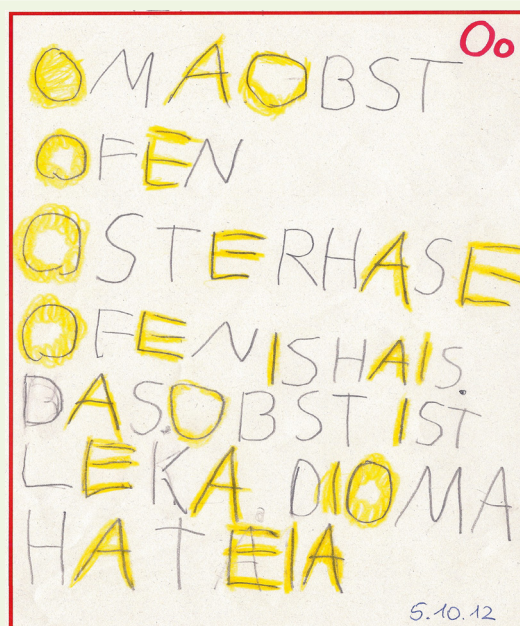 Oo
OMAOBST
OFEN
OSTERHASE
OFENISHAIS.
DASOBST IST
LEKA. DIOMA
HAT EIA
5.10.12